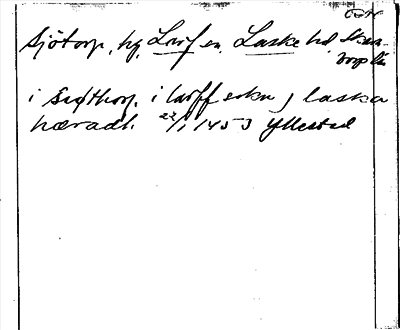 Sjötorp, hg, Larf sn, Laske hd, Skara-
borgs län
i Siøthorp i larff sokn j laska
hæradh 22/1 1453 Yllestad